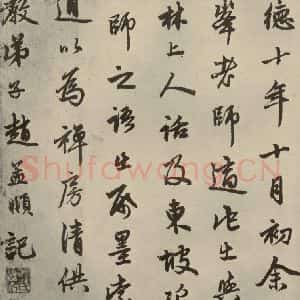 德十年十月初余
峯老師適此出與
林上人話及東坡
師之語出番墨索
道以為禪房清供
教弟子趙孟順記
Shufawang.CN